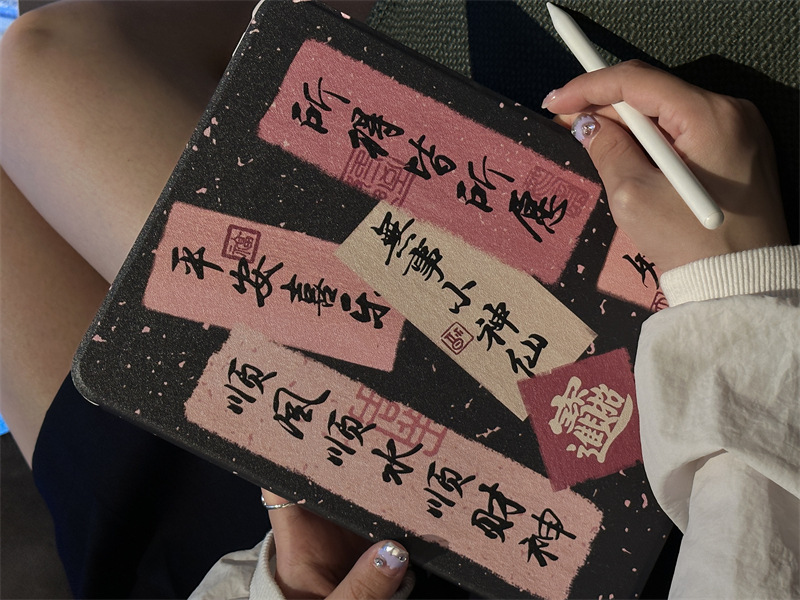 所得皆所愿
平安喜乐
福
無事小神仙
招財進寶
顺风顺水顺财神